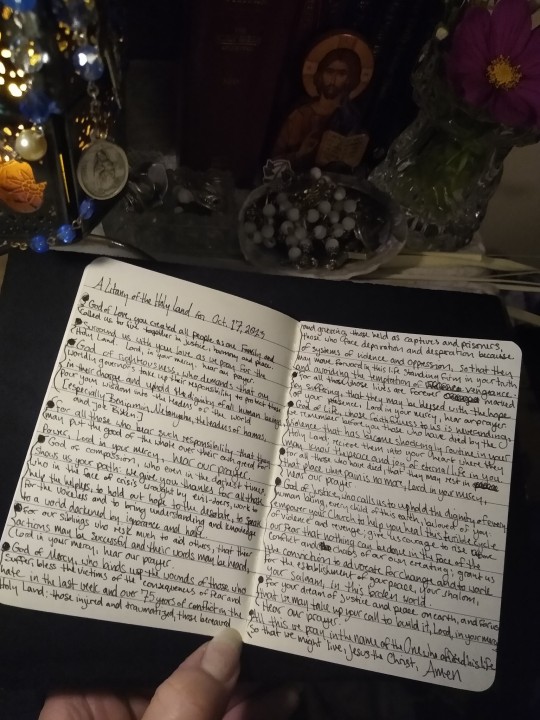 A Litany of the Holy Land for Oct. 17, 2023
God of Love, you created all people as one family and
called us to live together in justice, harmony and peace.
Surround us with your love as we pray for the
Holy Land. Lord, in your mercy, hear our prayer.
God of righteousness, who demands that our
worldly governors honor their responsibility to protect those
in their charge and uphold the dignity of all human beings,
pour your wisdom into the leaders of the world
(especially Benjamin Netanyahu, the leaders of Hamas,
and Joe Biden).
For all those who bear such responsibility, that they
may put the good of the whole over their own greed for
power, Lord in your mercy, hear our prayer.
God of compassion, who even in the darkest times,
shows us your path: we give you thanks for all those
who in the face of crisis brought by evildoers, work to
help the helpless, to hold out hope to the desperate, to speak
for the voiceless and to bring understanding and knowledge
to a world darkened by ignorance and hate.
For our siblings who risk much to aid others, that their
actions may be successful and their words may be heard,
Lord in your mercy, hear our prayer.
God of Mercy, who binds up the wounds of those who
suffer, bless the victims of the consequences of fear and
hate, in the last week and over 75 years of conflict in the
Holy Land: those injured and traumatized, those bereaved
and grieving, those held as captives and prisoners,
those who face deprivation and desperation because
of systems of violence and oppression, so that they
may move forward in this life standing firm in your truth
and avoiding the temptation of vengeance.
For all those whose lives are forever marred
by suffering, that they may be blessed with the hope
of your presence, Lord in your mercy, hear our prayer.
God of Life, whose faithfulness to us is never ending:
remember before you those who have died by the
violence that has become shockingly routine in your
Holy Land: receive them into your heart where they
may know the peace and joy of eternal life in you.
For all those who have died, that they may rest in
that place where pain is no more, Lord in your mercy
hear our prayer.
God of Justice, who calls us to uphold the dignity of every
human being, every child of this earth, beloved of you:
empower your church to help you heal this sinful cycle
of violence and revenge; give us courage to rise over
our fear that nothing can be done in the face of the
conflict and chaos of our own creating; grant us
the conviction to advocate for change and to work
for the establishment of your peace, your shalom,
your salaam, in this broken world.
For your dream of justice and peace on earth, and for us
that we may take up your call to build it, Lord, in your mercy
hear our prayer.
All this we pray in the name of the One who offered his life
so that we might live, Jesus the Christ, Amen